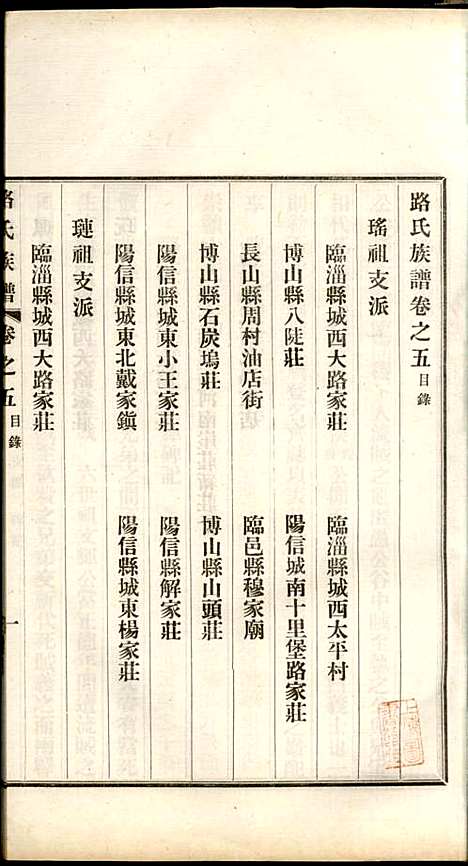 路氏族譜卷之五目錄
瑤祖支派
臨淄縣城西大路家莊　臨淄縣城西太平村
博山縣八陡莊　陽信城南十里堡路家莊
長山縣周村油店街　臨邑縣穆家廟
博山縣石炭塢莊　博山縣山頭莊
陽信縣城東小王家莊　陽信縣解家莊
陽信縣城東北戴家鎮　陽信縣城東楊家莊
璉祖支派
臨淄縣城西大路家莊
路氏族譜　卷之五　目錄　一